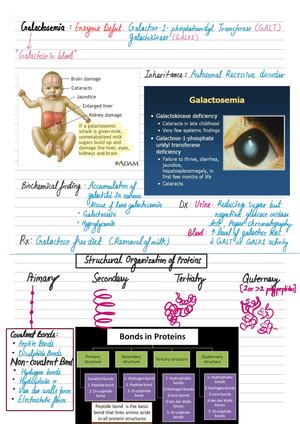 Galactosemia : Enzyme Defect Galactose-1-phosphate Transferase (GALT)
Galactokinase (GALK1)
"Galactose in blood"
Inheritance : Autosomal Recessive disorder
Brain damage
Cataracts
Jaundice
Enlarged liver
Kidney damage
If a galactosemic
infant is given milk,
unmetabolized milk
sugars build up and
damage the liver, eyes,
kidneys and brain
ADAM
Galactosemia
Galactokinase deficiency
Cataracts in late childhood
Very few systemic findings
Galactose-1-phosphate
uridyl transferase
deficiency
Failure to thrive, diarrhea,
jaundice,
hepatosplenomegaly, in
first few months of life
Cataracts
Biochemical finding : Accumulation of
galactitol in
tissue of lens
Galactosuria
Dx: Urine: Reducing sugar but
negative glucose oxidase
test, Paper chromatography
Blood: ↑ level of galactose
↓ GALT or GALK1 activity
Rx: Galactose free diet (Removal of milk)
Structural Organization of Proteins
Primary
Secondary
Tertiary
Quaternary
(2 or >2 polypeptides)
Covalent Bonds:
Peptide Bonds
Disulphide Bonds
Non-covalent Bond
Hydrogen bonds
Hydrophobic
Van der walls forces
Electrostatic
Bonds in Proteins
Primary structure
Secondary structure
Tertiary structure
Quaternary structure
Covalent bonds
1. Peptide bond
2. Di-sulphide bond
1. Hydrogen bond
2. Peptide bond
3. Di-sulphide bond
1. Hydrophobic bonds
2. Hydrogen bonds
3. Ionic bonds
4. Van der Walls forces
5. Di-sulphide bonds
1. Hydrophobic bonds
2. Hydrogen bonds
3. Ionic bonds
Peptide bond is the basic
bond that links amino acids
in all protein structures